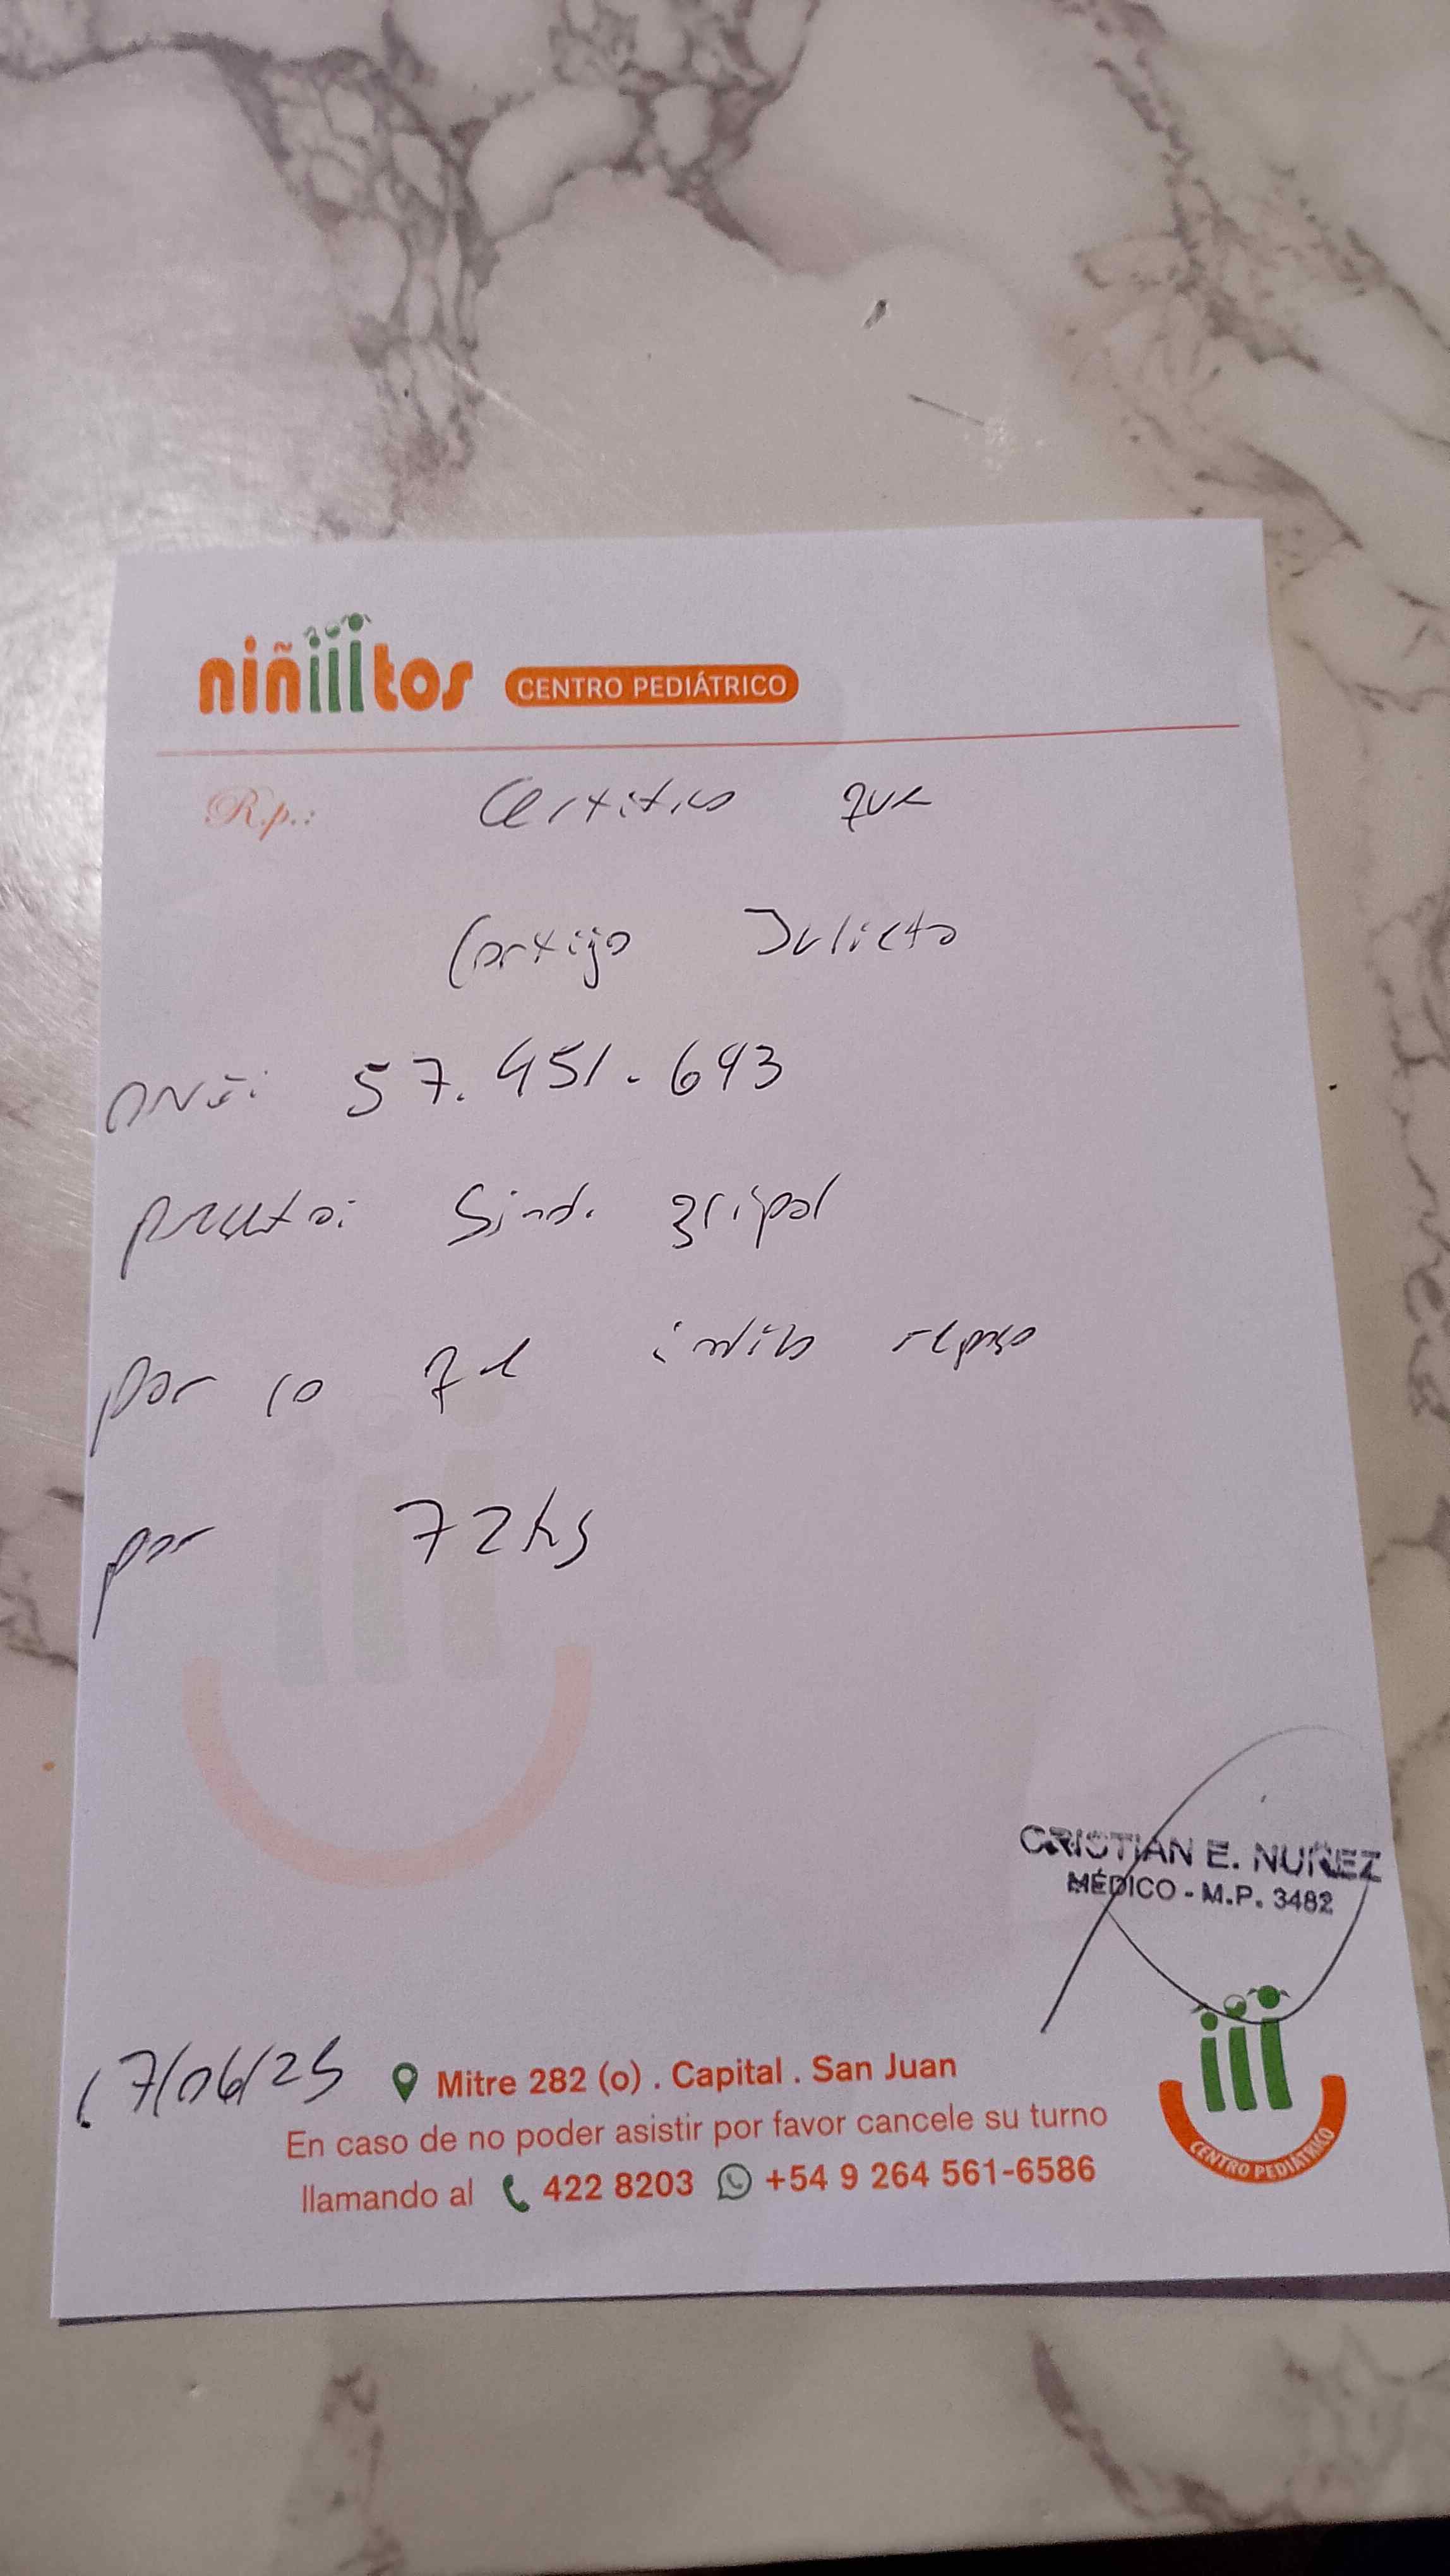 niñiiitos CENTRO PEDIÁTRICO
R.p.: Certifico que
Cortijo Julieta
DNI: 57.451.643
presenta: Sind. gripal
por lo que indico reposo
por 72hs
CRISTIAN E. NUÑEZ
MÉDICO - M.P. 3482
17/06/25 Mitre 282 (o) . Capital . San Juan
En caso de no poder asistir por favor cancele su turno
llamando al 422 8203 +54 9 264 561-6586
CENTRO PEDIÁTRICO